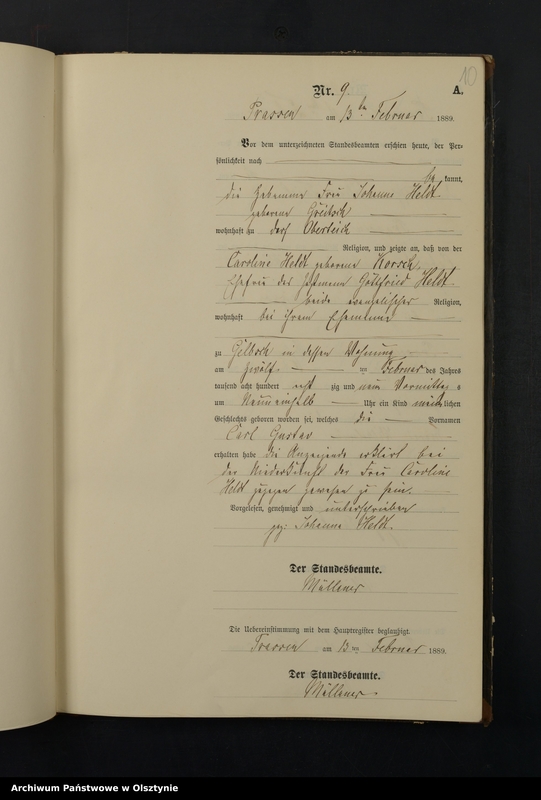 10
Nr. 9. A.
Prassen am 13ten Februar 1889.
Vor dem unterzeichneten Standesbeamten erschien heute, der Per-
sönlichkeit nach
kannt,
die Hebamme Frau Johanne Heldt
geborene
wohnhaft zu Dorf
Religion, und zeigte an, daß von der
Caroline Heldt geborene Korsch,
Ehefrau des Gottfried Heldt
beide evangelischer Religion,
wohnhaft bei ihrem Ehemanne
zu in dessen Wohnung
am zwölften Februar des Jahres
tausend acht hundert acht zig und neun Vormittags
um Neuneinhalb Uhr ein Kind männlichen
Geschlechts geboren worden sei, welches die Vornamen
Carl Gustav
erhalten habe die Anzeigende erklärt bei
der Niederkunft der Frau Caroline
Heldt zugegen gewesen zu sein.
Vorgelesen, genehmigt und unterschrieben
gez: Johanne Heldt.
Der Standesbeamte.
Die Uebereinstimmung mit dem Hauptregister beglaubigt.
Prassen am 13ten Februar 1889.
Der Standesbeamte.
Archiwum Państwowe w Olsztynie